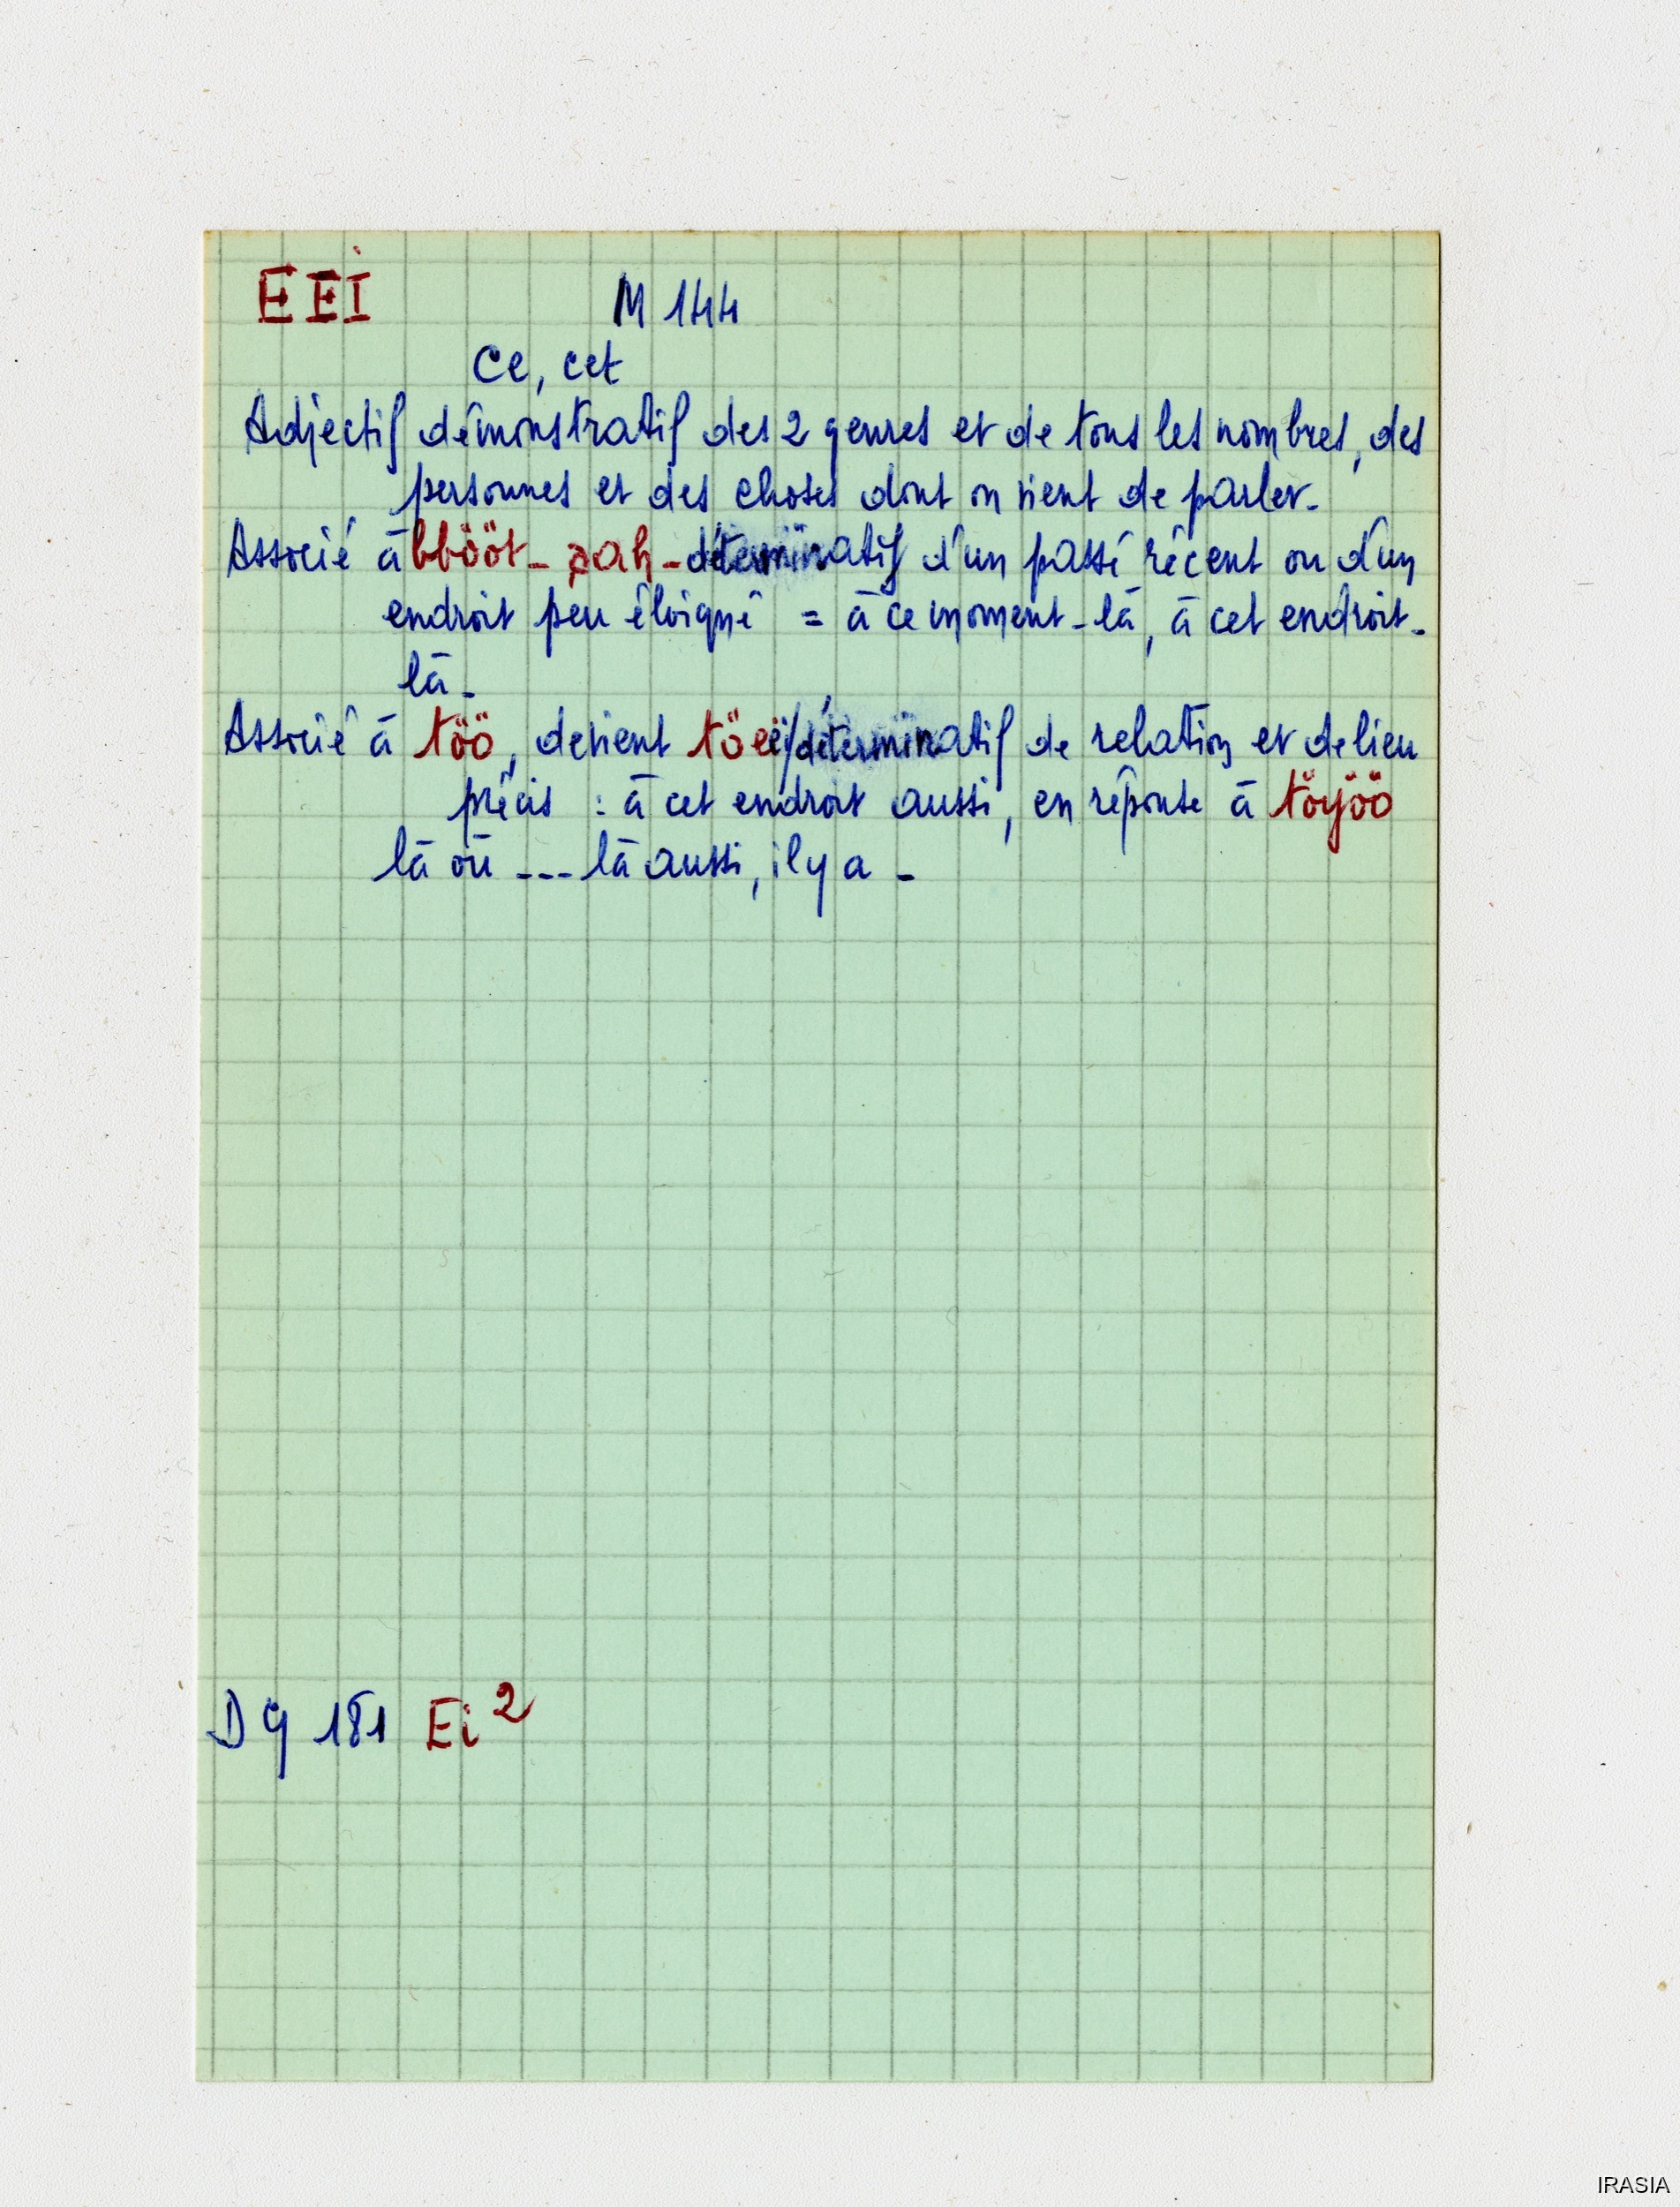 EEİ M 144
Ce, cet
Adjectif démonstratif des 2 genres et de tous les nombres, des
personnes et des choses dont on vient de parler.
Associé à bbööt - pah - déterminatif d'un passé récent ou d'un
endroit peu éloigné = à ce moment-là, à cet endroit-
là.
Associé à töö, devient töeï/déterminatif de relation et de lieu
précis : à cet endroit aussi, en réponse à töyöö
là où --- là aussi, il y a -
DG 181 Ei 2
IRASIA